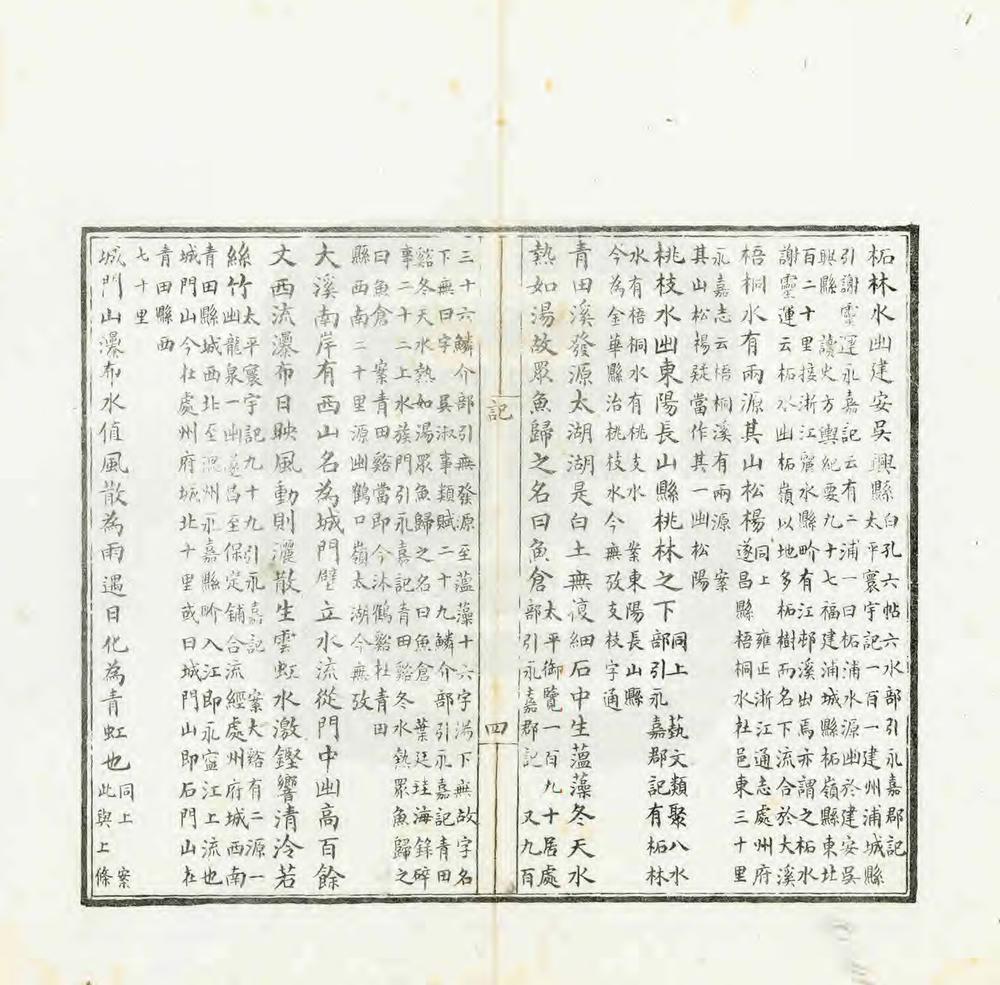 柘林水出建安吳興縣白孔六帖六水部引永嘉郡記
太平寰宇記一百一建州浦城縣
引謝靈運永嘉記云有二浦一曰柘浦水源出於建安吳
興縣 讀史方輿紀要九十七福建浦城縣柘嶺縣東北
百二十里接浙江麗水縣畍有江郎溪出焉亦謂之柘水
謝靈運云柘水出柘嶺以地多柘樹而名下流合於大溪
梧桐水有兩源其山松楊同上 雍正浙江通志處州府
遂昌縣梧桐水在邑東三十里
永嘉志云梧桐溪有兩源 案
其山松楊疑當作其一出松陽
桃枝水出東陽長山縣桃林之下同上 藝文類聚八水
部引永嘉郡記有柘林
水有梧桐水有桃支水 案東陽長山縣
今為金華縣治桃枝水今無攷支枝字通
青田溪發源太湖湖是白土無復細石中生薀藻冬天水
熱如湯故眾魚歸之名曰魚倉太平御覽一百九十居處
部引永嘉郡記 又九百
記 四
三十六鱗介部引無發源至薀藻十六字湯下無故字名
下無曰字 吳淑事類賦二十九鱗介部引永嘉記青田
谿冬天水熱如湯眾魚歸之名曰魚倉 葉廷珪海錄碎
事二十二上水族門引永嘉記青田谿冬水熱眾魚歸之
曰魚倉 案青田谿當即今沐鶴谿在青田
縣西南二十里源出鶴口嶺太湖今無攷
大溪南岸有西山名為城門壁立水流從門中出高百餘
丈西流瀑布日映風動則灑散生雲虹水激鏗響清泠若
絲竹太平寰宇記九十九引永嘉記 案大谿有二源一
出龍泉一出遂昌至保定鋪合流經處州府城西南
青田縣城西北至溫州永嘉縣畍入江即永寧江上流也
城門山今在處州府城北十里或曰城門山即石門山在
青田縣西
七十里
城門山瀑布水值風散為雨遇日化為青虹也同上 案
此與上條